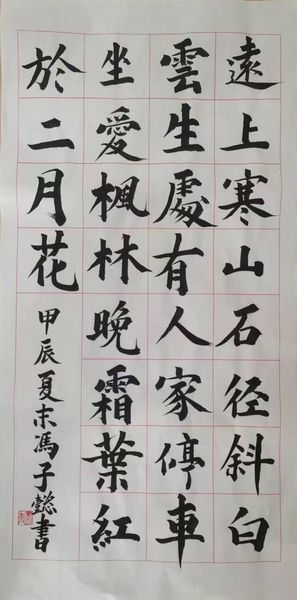 遠上寒山石径斜白
雲生處有人家停車
坐愛楓林晚霜葉紅
於二月花
甲辰夏末馮子懿書